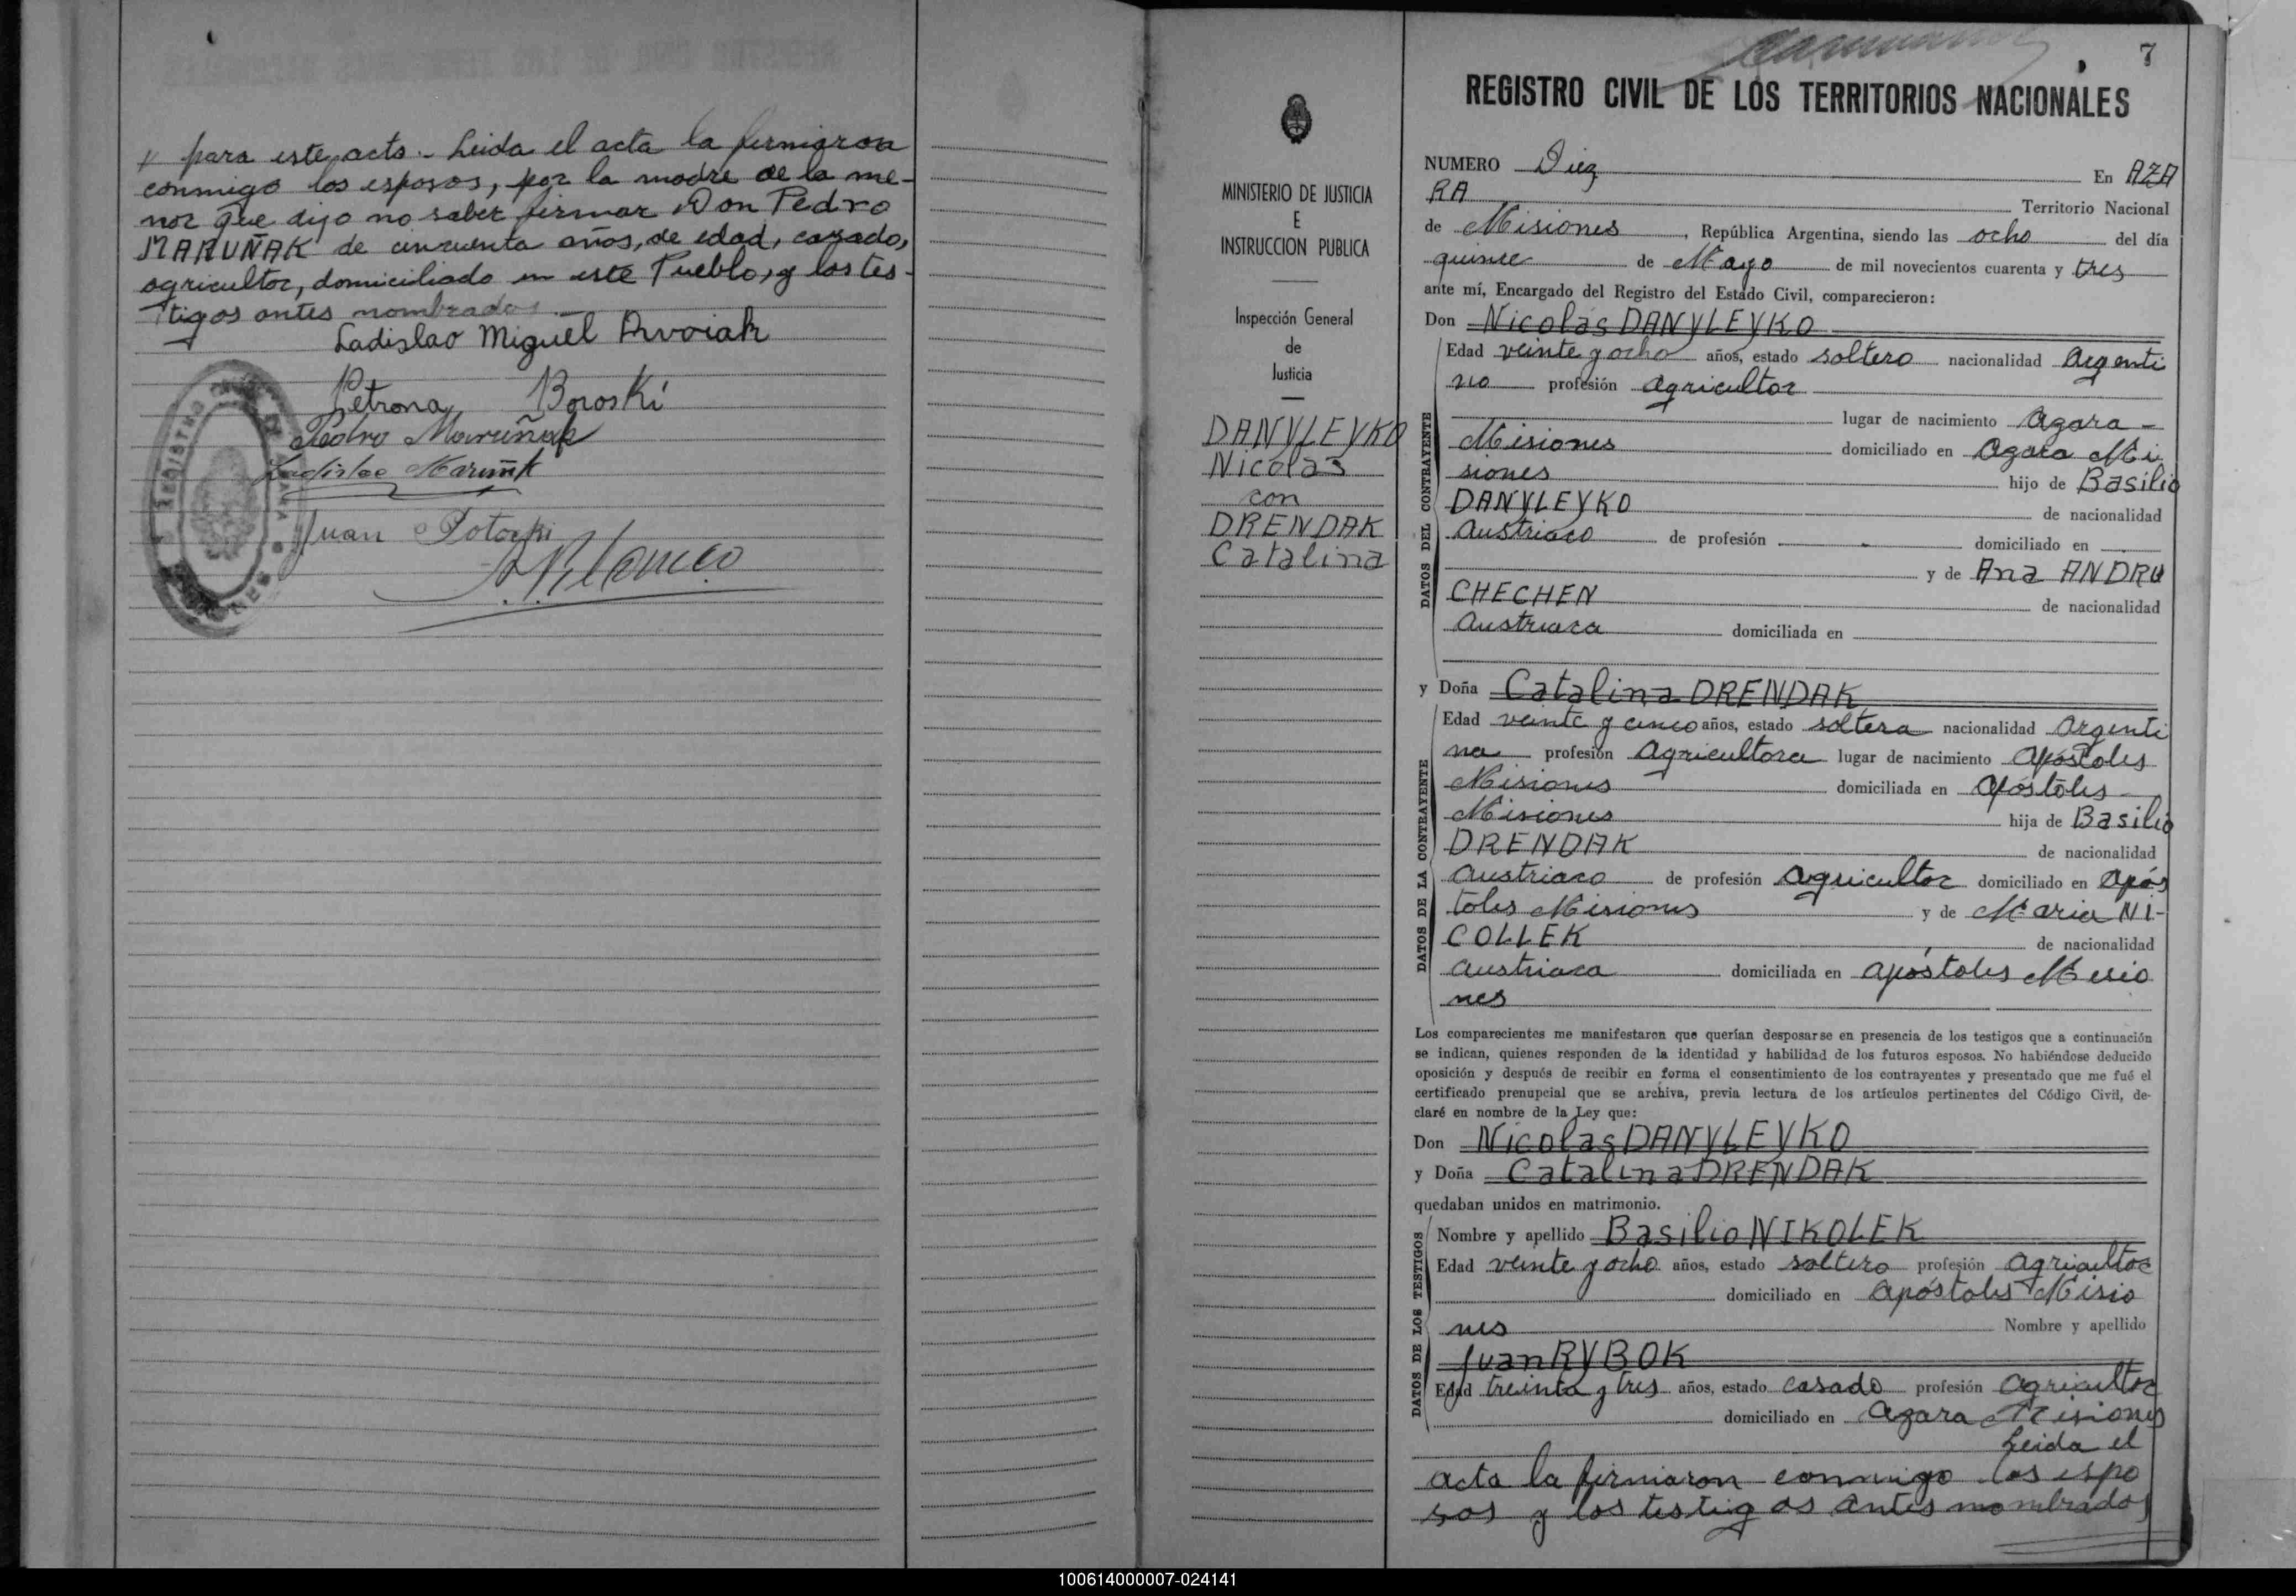 para este acto.- Leida el acta la firmaron
conmigo los esposos, por la madre de la me-
nor que dijo no saber firmar Don Pedro
MARUÑAK de cincuenta años, de edad, casado,
agricultor, domiciliado en este Pueblo, y los tes-
tigos antes nombrados.-
Ladislao Miguel
Petrona Boroski
Pedro Maruñak
Ladislao Maruñk
Juan Potocki
7
REGISTRO CIVIL DE LOS TERRITORIOS NACIONALES
MINISTERIO DE JUSTICIA
E
INSTRUCCION PUBLICA
Inspección General
de
Justicia
DANYLEYKO
Nicolas
con
DRENDAK
Catalina
NUMERO Diez En AZA
RA Territorio Nacional
de Misiones, República Argentina, siendo las ocho del día
quinse de Mayo de mil novecientos cuarenta y tres
ante mí, Encargado del Registro del Estado Civil, comparecieron:
Don Nicolás DANYLEYKO
DATOS DEL CONTRAYENTE
Edad veinte y ocho años, estado soltero nacionalidad Argenti
no profesión agricultor
lugar de nacimiento Azara -
Misiones domiciliado en Azara Mi
siones hijo de Basilio
DANYLEYKO de nacionalidad
Austriaco de profesión - domiciliado en
y de Ana ANDRU
CHECHEN de nacionalidad
Austriaca domiciliada en
y Doña Catalina DRENDAK
DATOS DE LA CONTRAYENTE
Edad veinte y cinco años, estado soltera nacionalidad Argenti
na profesión Agricultora lugar de nacimiento Apóstoles
Misiones domiciliada en Apóstoles -
Misiones hija de Basilio
DRENDAK de nacionalidad
Austriaco de profesión Agricultor domiciliado en Após
toles Misiones y de Maria NI-
COLLEK de nacionalidad
Austriaca domiciliada en Apóstoles Misio
nes
Los comparecientes me manifestaron que querían desposarse en presencia de los testigos que a continuación
se indican, quienes responden de la identidad y habilidad de los futuros esposos. No habiéndose deducido
oposición y después de recibir en forma el consentimiento de los contrayentes y presentado que me fué el
certificado prenupcial que se archiva, previa lectura de los artículos pertinentes del Código Civil, de-
claré en nombre de la Ley que:
Don Nicolas DANYLEYKO
y Doña Catalina DRENDAK
quedaban unidos en matrimonio.
DATOS DE LOS TESTIGOS
Nombre y apellido Basilio NIKOLEK
Edad veinte y ocho años, estado soltero profesión agricultor
domiciliado en Apóstoles Misio
nes Nombre y apellido
Juan RYBOK
Edad treinta y tres años, estado casado profesión Agricultor
domiciliado en Azara Misiones
Leida el
acta la firmaron conmigo los espo
sos y los testigos antes nombrados
100614000007-024141